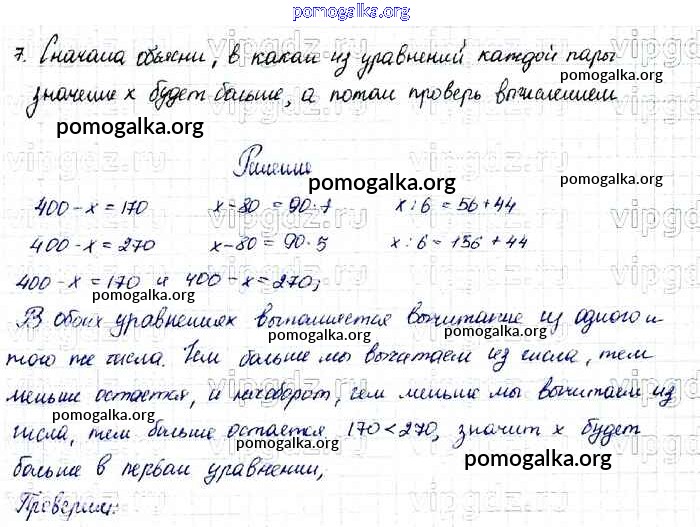 pomogalka.org
7. Сначала объясни, в каком из уравнений каждой пары
pomogalka.org
значение x будет больше, а потом проверь вычислением
pomogalka.org
Решение
pomogalka.org
pomogalka.org
400-x=170 x-80=90·7 x:6=56+44
400-x=270 x-80=90·5 x:6=156+44
400-x=170 и 400-x=270;
pomogalka.org
pomogalka.org
В обоих уравнениях выполняется вычитание из одного и
того же числа. Чем больше мы вычитаем из числа, тем
меньше остается, и наоборот, чем меньше мы вычитаем из
pomogalka.org
числа, тем больше остается 170<270, значит x будет
pomogalka.org
больше в первом уравнении;
pomogalka.org
Проверим:
vipgdz.ru